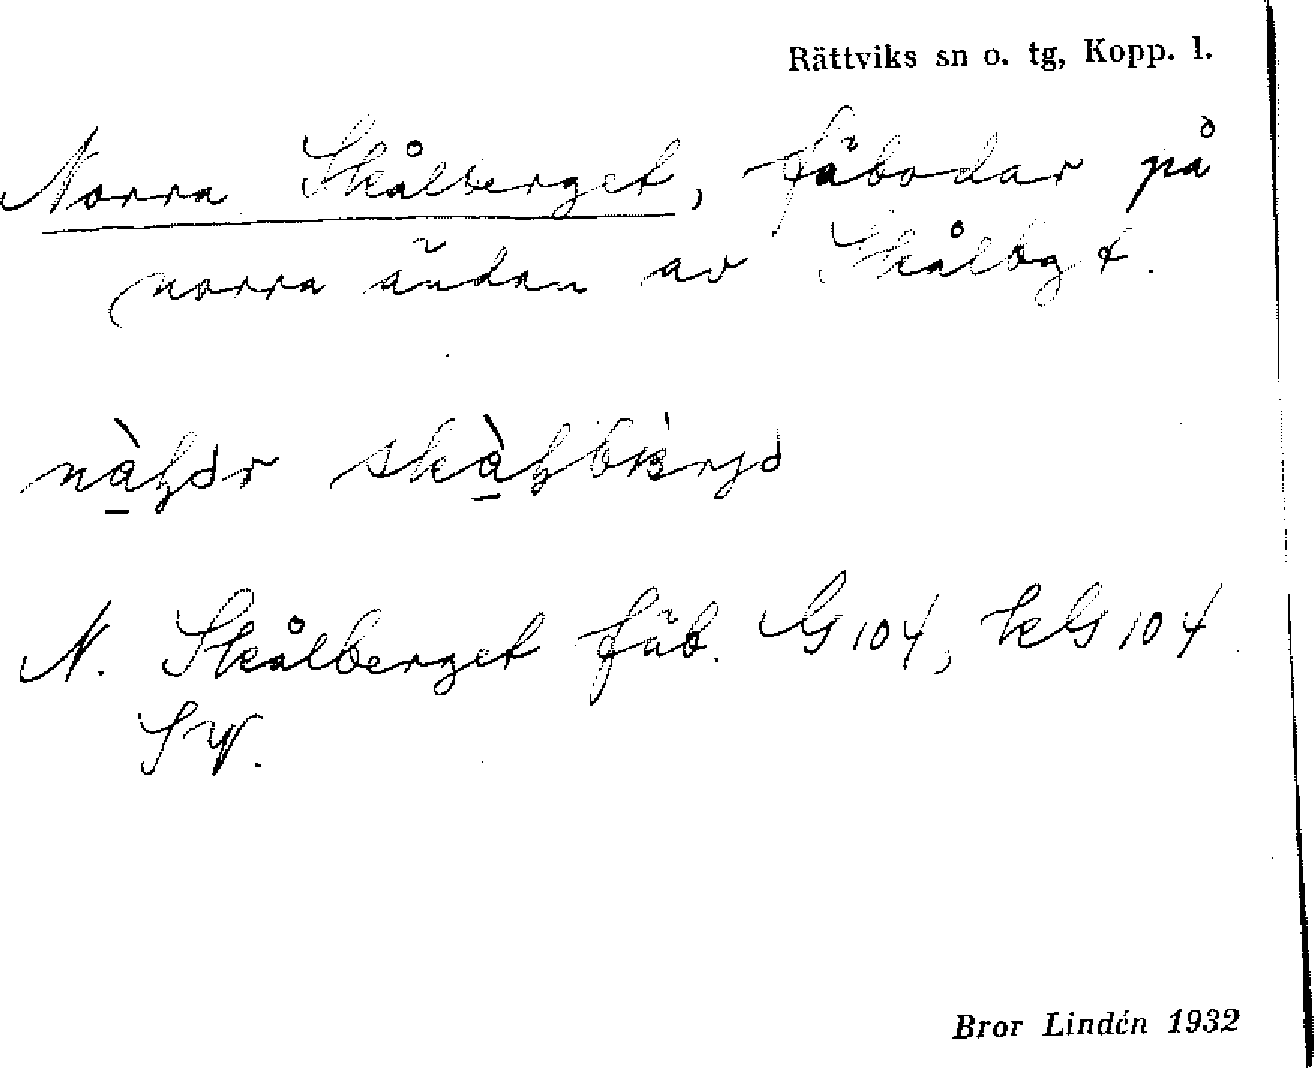 Rättviks sn o. tg, Kopp. l.
Norra Skålberget, fäbodar på
norra ändan av Skålbgt.
N. Skålberget fäb. G 104, kG 104
SV.
Bror Lindén 1932